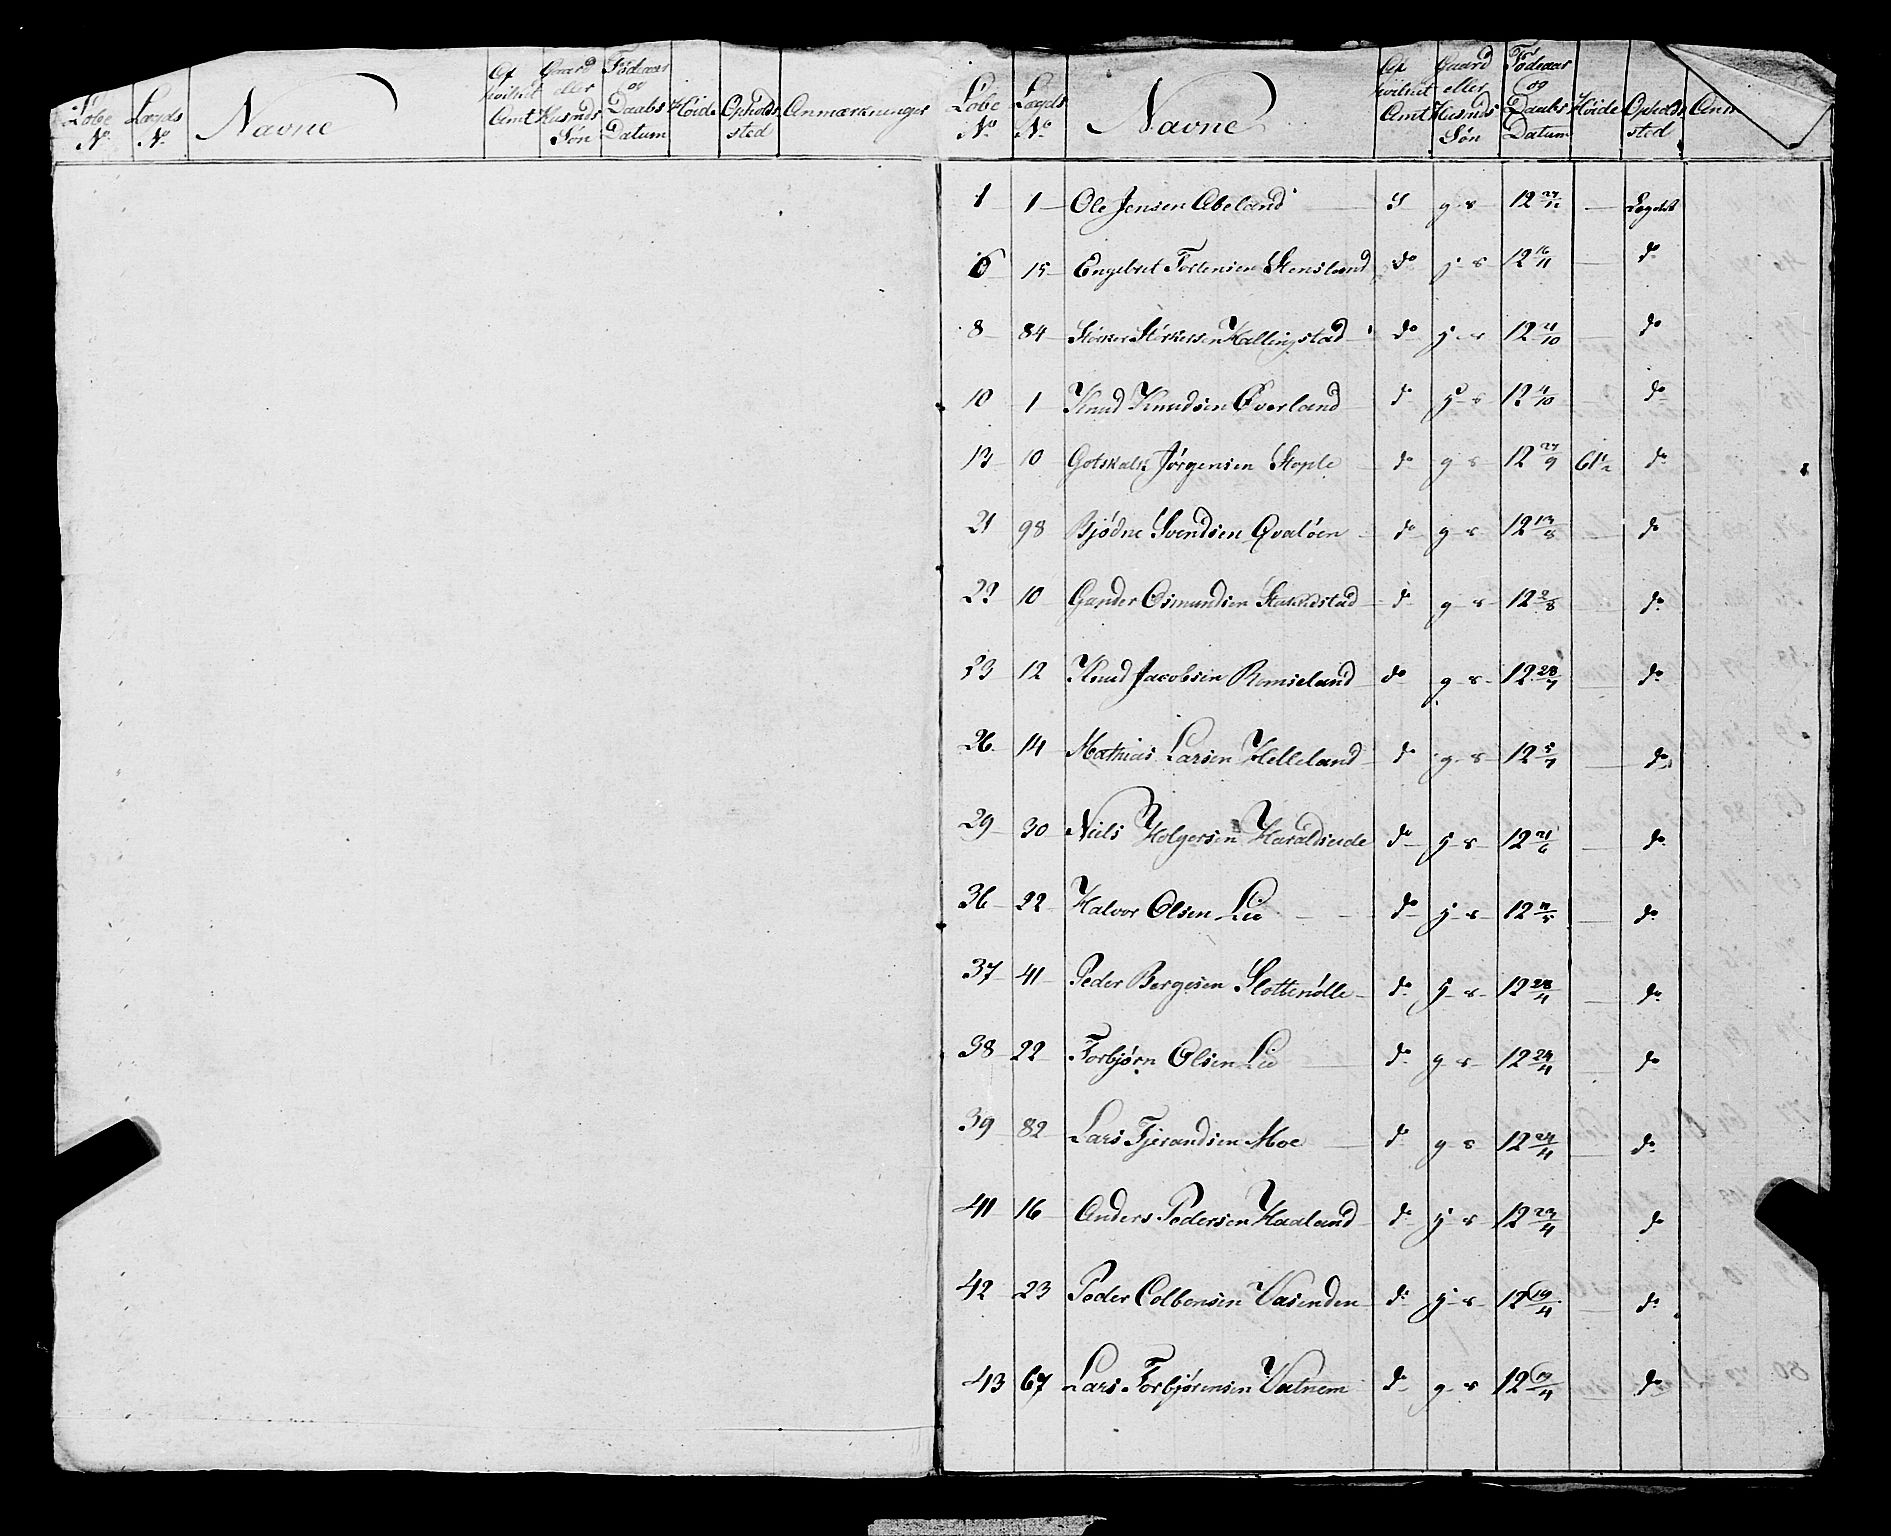 Løbe N° Lægds N° Navne Af hvilket Amt Gaard eller Husmds Søn Fødeaar og Daabs Datum Høide Opholds sted Anmærkninger
Løbe N° Lægds N° Navne Af hvilket Amt Gaard eller Husmds Søn Fødeaar og Daabs Datum Høide Opholds sted Anm
1 1 Ole Jensen Abeland S g s 12 27/12 Legdet
6 15 Engebret Torbensen Stensland do g s 12 16/11 do
8 84 Størker Størkersen Hallingstad do g s 12 11/10 do
10 1 Knud Knudsen Øverland do g s 12 4/10 do
13 10 Gotskalk Jørgensen Stople do g s 12 27/9 61½ do
21 98 Bjødne Svendsen Qvaløen do g s 12 13/8 do
22 10 Gunder Osmundsen do g s 12 2/8 do
23 12 Knud Jacobsen Romseland do g s 12 28/7 do
26 14 Mathias Larsen Helleland do g s 12 5/7 do
29 30 Niels Holgersen Haraldseide do g s 12 21/6 do
36 22 Halvor Olsen Lie do g s 12 11/5 do
37 41 Peder Bergesen Slottenølle do g s 12 28/4 do
38 22 Torbjørn Olsen Lie do g s 12 24/4 do
39 82 Lars Tjerandsen Moe do g s 12 24/4 do
41 16 Anders Pedersen Haaland do g s 12 23/4 do
42 23 Peder Colbensen Vasenden do g s 12 19/4 do
43 67 Lars Torbjørensen Vatnem do g s 12 19/4 do